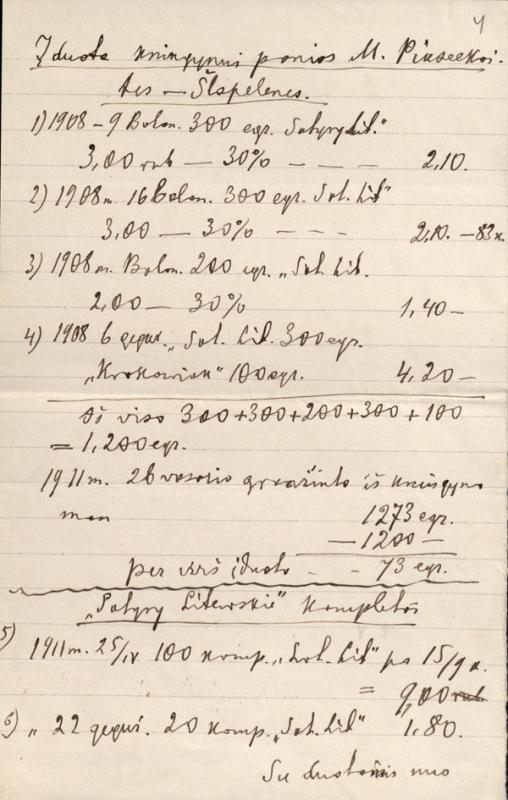 4
Įduota kningynui ponios M. Piaseckai-
tės — Šlapelenės.
1) 1908 – 9 Balan. 300 egz. „Satyry Lit."
3,00 rub — 30% — — — 2,10.
2) 1908 m. 16 Balan. 300 egz. Sat. Lit"
3,00 — 30% — — — 2,10. — 83 k.
3) 1908 m. Balan. 200 egz. „Sat. Lit.
2,00 — 30% 1,40 —
4) 1908 6 geguž. „Sat. Lit. 300 egz.
„Krakowiak" 100 egz. 4,20 —
Iš viso 300+300+200+300+100
= 1,200 egz.
1911 m. 26 vasario gražinta iš kningyno
man 1273 egz.
— 1200 —
per virš įduota - - 73 egz.
„Satyry Litewskie" kompletos
5) 1911 m. 25/IV 100 komp. „Sat. Lit" po 15/9 k.
= 9,00 rub.
6) „ 22 geguž. 20 komp. „Sat. Lit" 1.80.
Su duotomis nuo